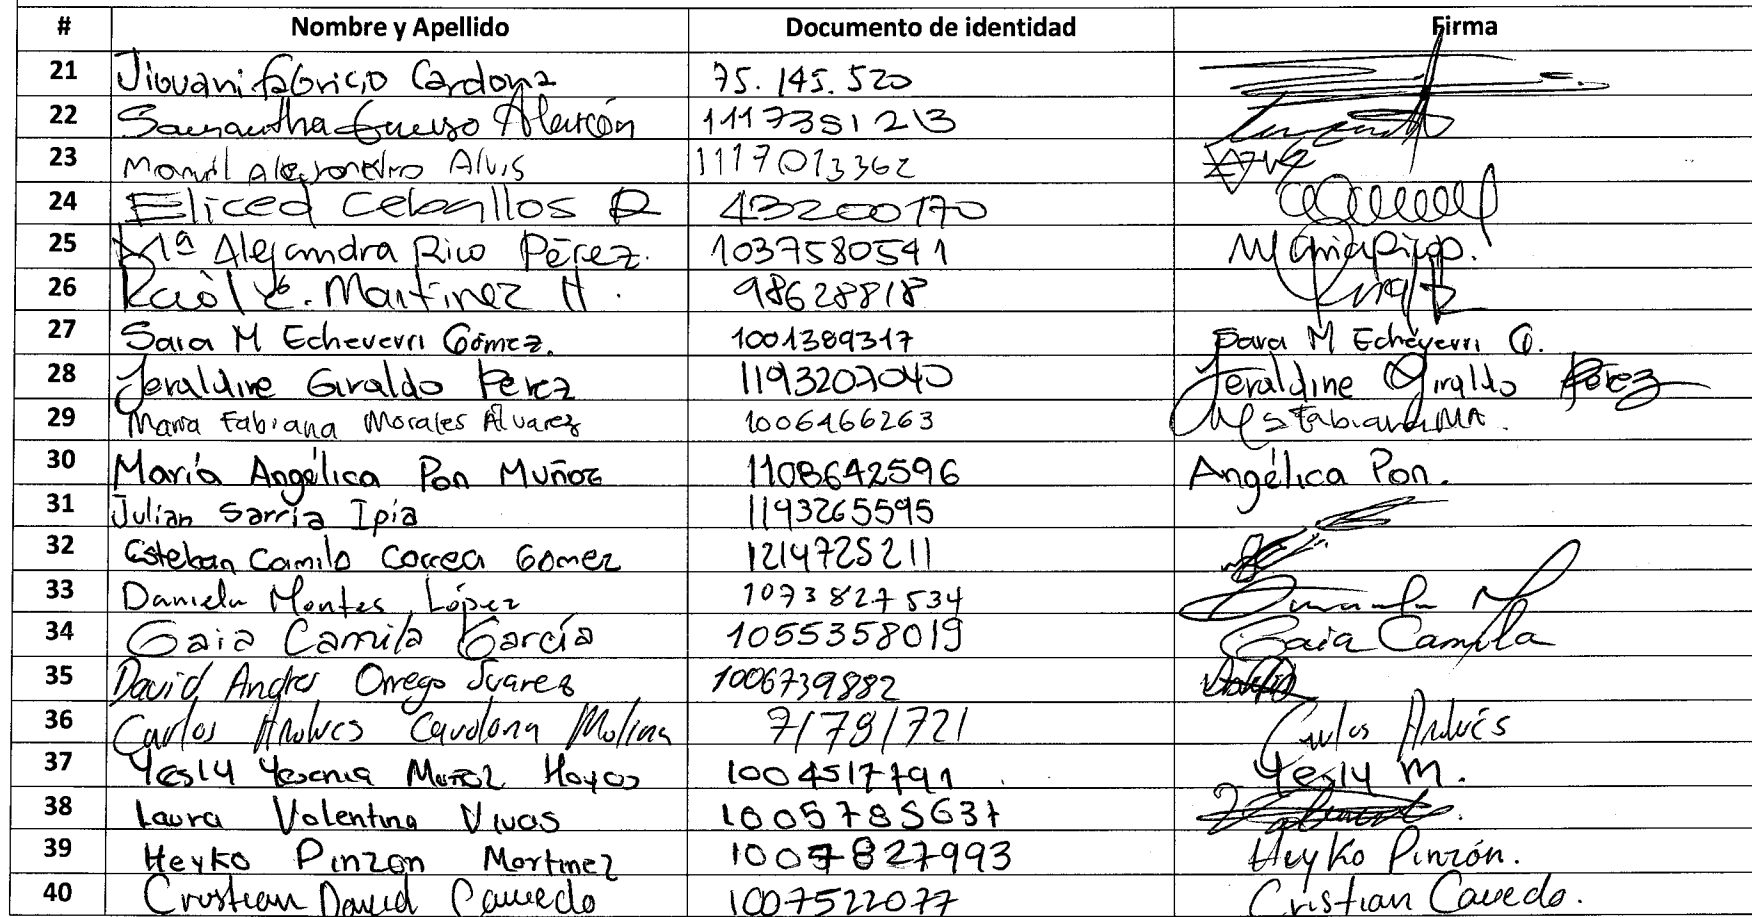 # Nombre y Apellido Documento de identidad Firma
21 Jiovani fabricio Cardona 75.145.520
22 Samantha Alarcón 1117351213
23 Alejandro Alvis 1117013362
24 Eliced Ceballos R 43200170
25 Mª Alejandra Rico Pérez. 1037580541
26 Raòl E. Martinez H. 98628818
27 Sara M Echeverri Gómez. 1001389317 Sara M Echeverri G.
28 Jeraldine Giraldo Perez 1193207040 Jeraldine Giraldo Perez
29 Maria Fabiana Morales Alvarez 1006466263 Fabiana MA.
30 María Angélica Pon Muñoz 1108642596 Angélica Pon.
31 Julian Sarria Ipia 1193265595
32 Esteban Camilo Correa Gomez 1214725211
33 Daniela Montes López 1073827534
34 Gaia Camila García 1055358019 Gaia Camila
35 David Andres Orrego Suarez 1006739882
36 Carlos Andres Cardona Molina 71791721 Carlos Andrés
37 Yesly Yesenia Muñoz Hoyos 1004517791 Yesly M.
38 Laura Valentina Vivas 1005785637
39 Heyko Pinzon Martinez 1007827993 Heyko Pinzón.
40 Cristian David Cavedo 1007522077 Cristian Cavedo.